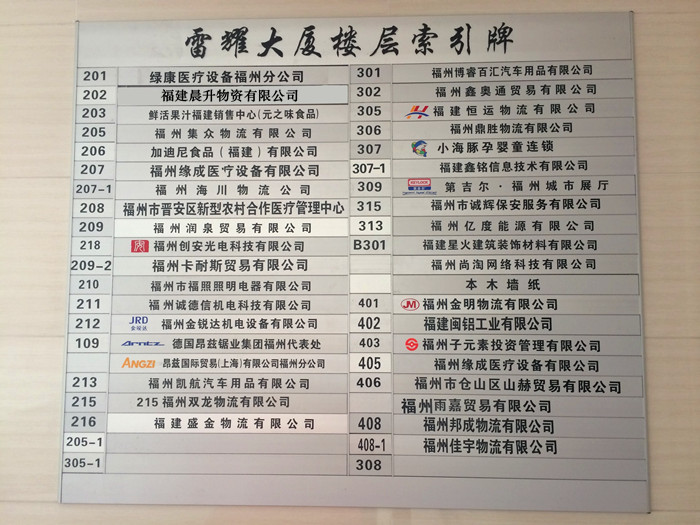 雷耀大厦楼层索引牌
201 绿康医疗设备福州分公司
202 福建晨升物资有限公司
203 鲜活果汁福建销售中心(元之味食品)
205 福州集众物流有限公司
206 加迪尼食品（福建）有限公司
207 福州缘成医疗设备有限公司
207-1 福州海川物流公司
208 福州市晋安区新型农村合作医疗管理中心
209 福州润泉贸易有限公司
218 福州创安光电科技有限公司
209-2 福州卡耐斯贸易有限公司
210 福州市福照照明电器有限公司
211 福州诚德信机电科技有限公司
212 JRD 金锐达 福州金锐达机电设备有限公司
109 Arntz 德国昂兹锯业集团福州代表处
ANGZI 昂兹国际贸易(上海)有限公司福州分公司
213 福州凯航汽车用品有限公司
215 215福州双龙物流有限公司
216 福建盛金物流有限公司
205-1
305-1
301 福州博睿百汇汽车用品有限公司
302 福州鑫奥通贸易有限公司
305 福建恒运物流有限公司
306 福州鼎胜物流有限公司
307 小海豚孕婴童连锁
307-1 福建鑫铭信息技术有限公司
309 第吉尔·福州城市展厅
315 福州市诚辉保安服务有限公司
313 福州亿度能源有限公司
B301 福建星火建筑装饰材料有限公司
福州尚淘网络科技有限公司
本木墙纸
401 JM 福州金明物流有限公司
402 福建闽铝工业有限公司
403 福州子元素投资管理有限公司
405 福州缘成医疗设备有限公司
406 福州市仓山区山赫贸易有限公司
福州雨嘉贸易有限公司
408 福州邦成物流有限公司
408-1 福州佳宇物流有限公司
308